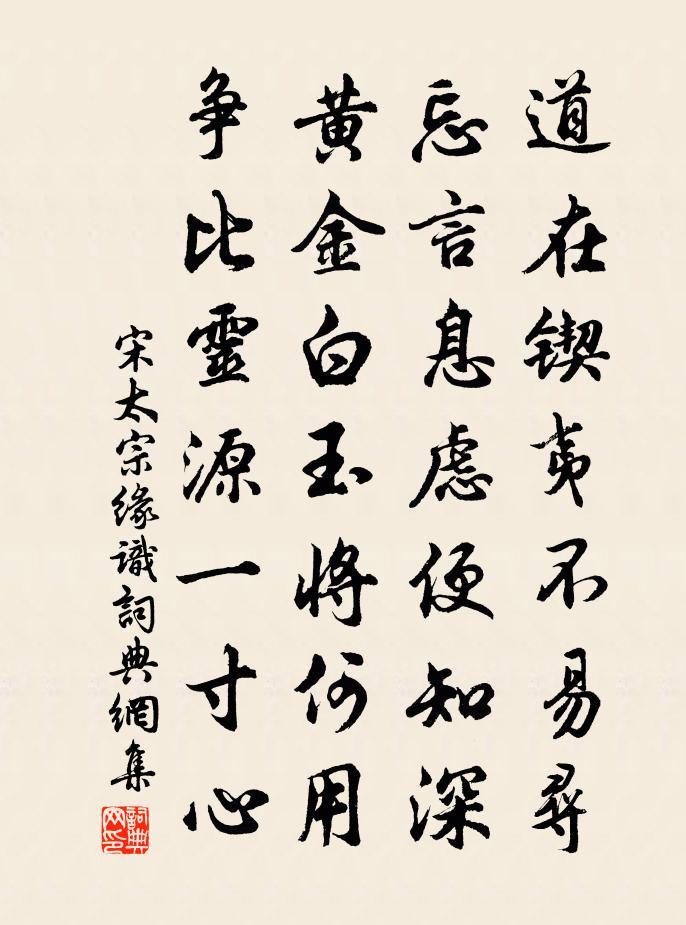 道在锲夷不易尋
忘言息慮便知深
黃金白玉將何用
爭比靈源一寸心
宋太宗緣識詞典網集
詞典網印